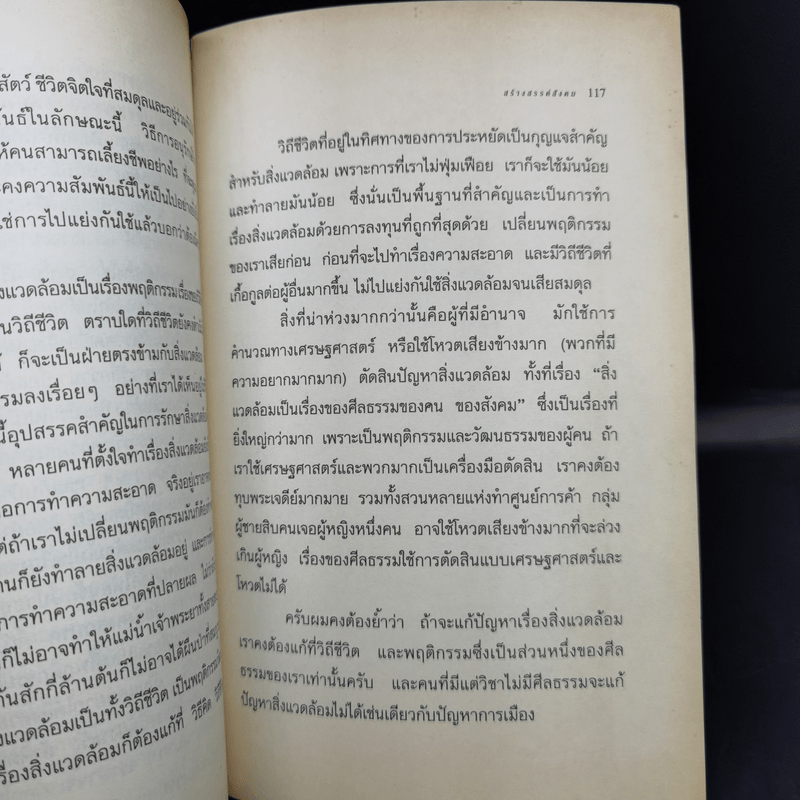 สัตว์ ชีวิตจิตใจที่สมดุลและอยู่ร่วมกัน
พันธ์ในลักษณะนี้ วิธีการอนุรักษ์
ให้คนสามารถเลี้ยงชีพอย่างไร ที่จะ
ะคงความสัมพันธ์นี้ให้เป็นไปอย่าง
ใช่การไปแย่งกันใช้แล้วบอกว่าต้อง
งแวดล้อมเป็นเรื่องพฤติกรรมเรื่องของวิถี
นวิถีชีวิต ตราบใดที่วิถีชีวิตยังคง
ก็จะเป็นฝ่ายตรงข้ามกับสิ่งแวดล้อม
รมลงเรื่อยๆ อย่างที่เราได้เห็นอยู่
นี้อุปสรรคสำคัญในการรักษาสิ่งแวดล้อม
หลายคนที่ตั้งใจทำเรื่องสิ่งแวดล้อม
อการทำความสะอาด จริงอยู่เราอาจ
ต่ถ้าเราไม่เปลี่ยนพฤติกรรมมันก็ต้อง
านก็ยังทำลายสิ่งแวดล้อมอยู่ และการ
การทำความสะอาดที่ปลายผล ไม่ว่า
ก็ไม่อาจทำให้แม่น้ำเจ้าพระยาทั้งสาย
กันสักกี่ล้านต้นก็ไม่อาจได้ผืนป่าที่สมบูรณ์
งแวดล้อมเป็นทั้งวิถีชีวิต เป็นพฤติกรรม
รื่องสิ่งแวดล้อมก็ต้องแก้ที่ วิธีคิด วิถีชีวิต
สร้างสรรค์สังคม 117
วิถีชีวิตที่อยู่ในทิศทางของการประหยัดเป็นกุญแจสำคัญ
สำหรับสิ่งแวดล้อม เพราะการที่เราไม่ฟุ่มเฟือย เราก็จะใช้มันน้อย
และทำลายมันน้อย ซึ่งนั่นเป็นพื้นฐานที่สำคัญและเป็นการทำ
เรื่องสิ่งแวดล้อมด้วยการลงทุนที่ถูกที่สุดด้วย เปลี่ยนพฤติกรรม
ของเราเสียก่อน ก่อนที่จะไปทำเรื่องความสะอาด และมีวิถีชีวิตที่
เกื้อกูลต่อผู้อื่นมากขึ้น ไม่ไปแย่งกันใช้สิ่งแวดล้อมจนเสียสมดุล
สิ่งที่น่าห่วงมากกว่านั้นคือผู้ที่มีอำนาจ มักใช้การ
คำนวณทางเศรษฐศาสตร์ หรือใช้โหวตเสียงข้างมาก (พวกที่มี
ความอยากมากมาก) ตัดสินปัญหาสิ่งแวดล้อม ทั้งที่เรื่อง “สิ่ง
แวดล้อมเป็นเรื่องของศีลธรรมของคน ของสังคม” ซึ่งเป็นเรื่องที่
ยิ่งใหญ่กว่ามาก เพราะเป็นพฤติกรรมและวัฒนธรรมของผู้คน ถ้า
เราใช้เศรษฐศาสตร์และพวกมากเป็นเครื่องมือตัดสิน เราคงต้อง
ทุบพระเจดีย์มากมาย รวมทั้งสวนหลายแห่งทำศูนย์การค้า กลุ่ม
ผู้ชายสิบคนเจอผู้หญิงหนึ่งคน อาจใช้โหวตเสียงข้างมากที่จะล่วง
เกินผู้หญิง เรื่องของศีลธรรมใช้การตัดสินแบบเศรษฐศาสตร์และ
โหวตไม่ได้
ครับผมคงต้องย้ำว่า ถ้าจะแก้ปัญหาเรื่องสิ่งแวดล้อม
เราคงต้องแก้ที่วิถีชีวิต และพฤติกรรมซึ่งเป็นส่วนหนึ่งของศีล
ธรรมของเราเท่านั้นครับ และคนที่มีแต่วิชาไม่มีศีลธรรมจะแก้
ปัญหาสิ่งแวดล้อมไม่ได้เช่นเดียวกับปัญหาการเมือง